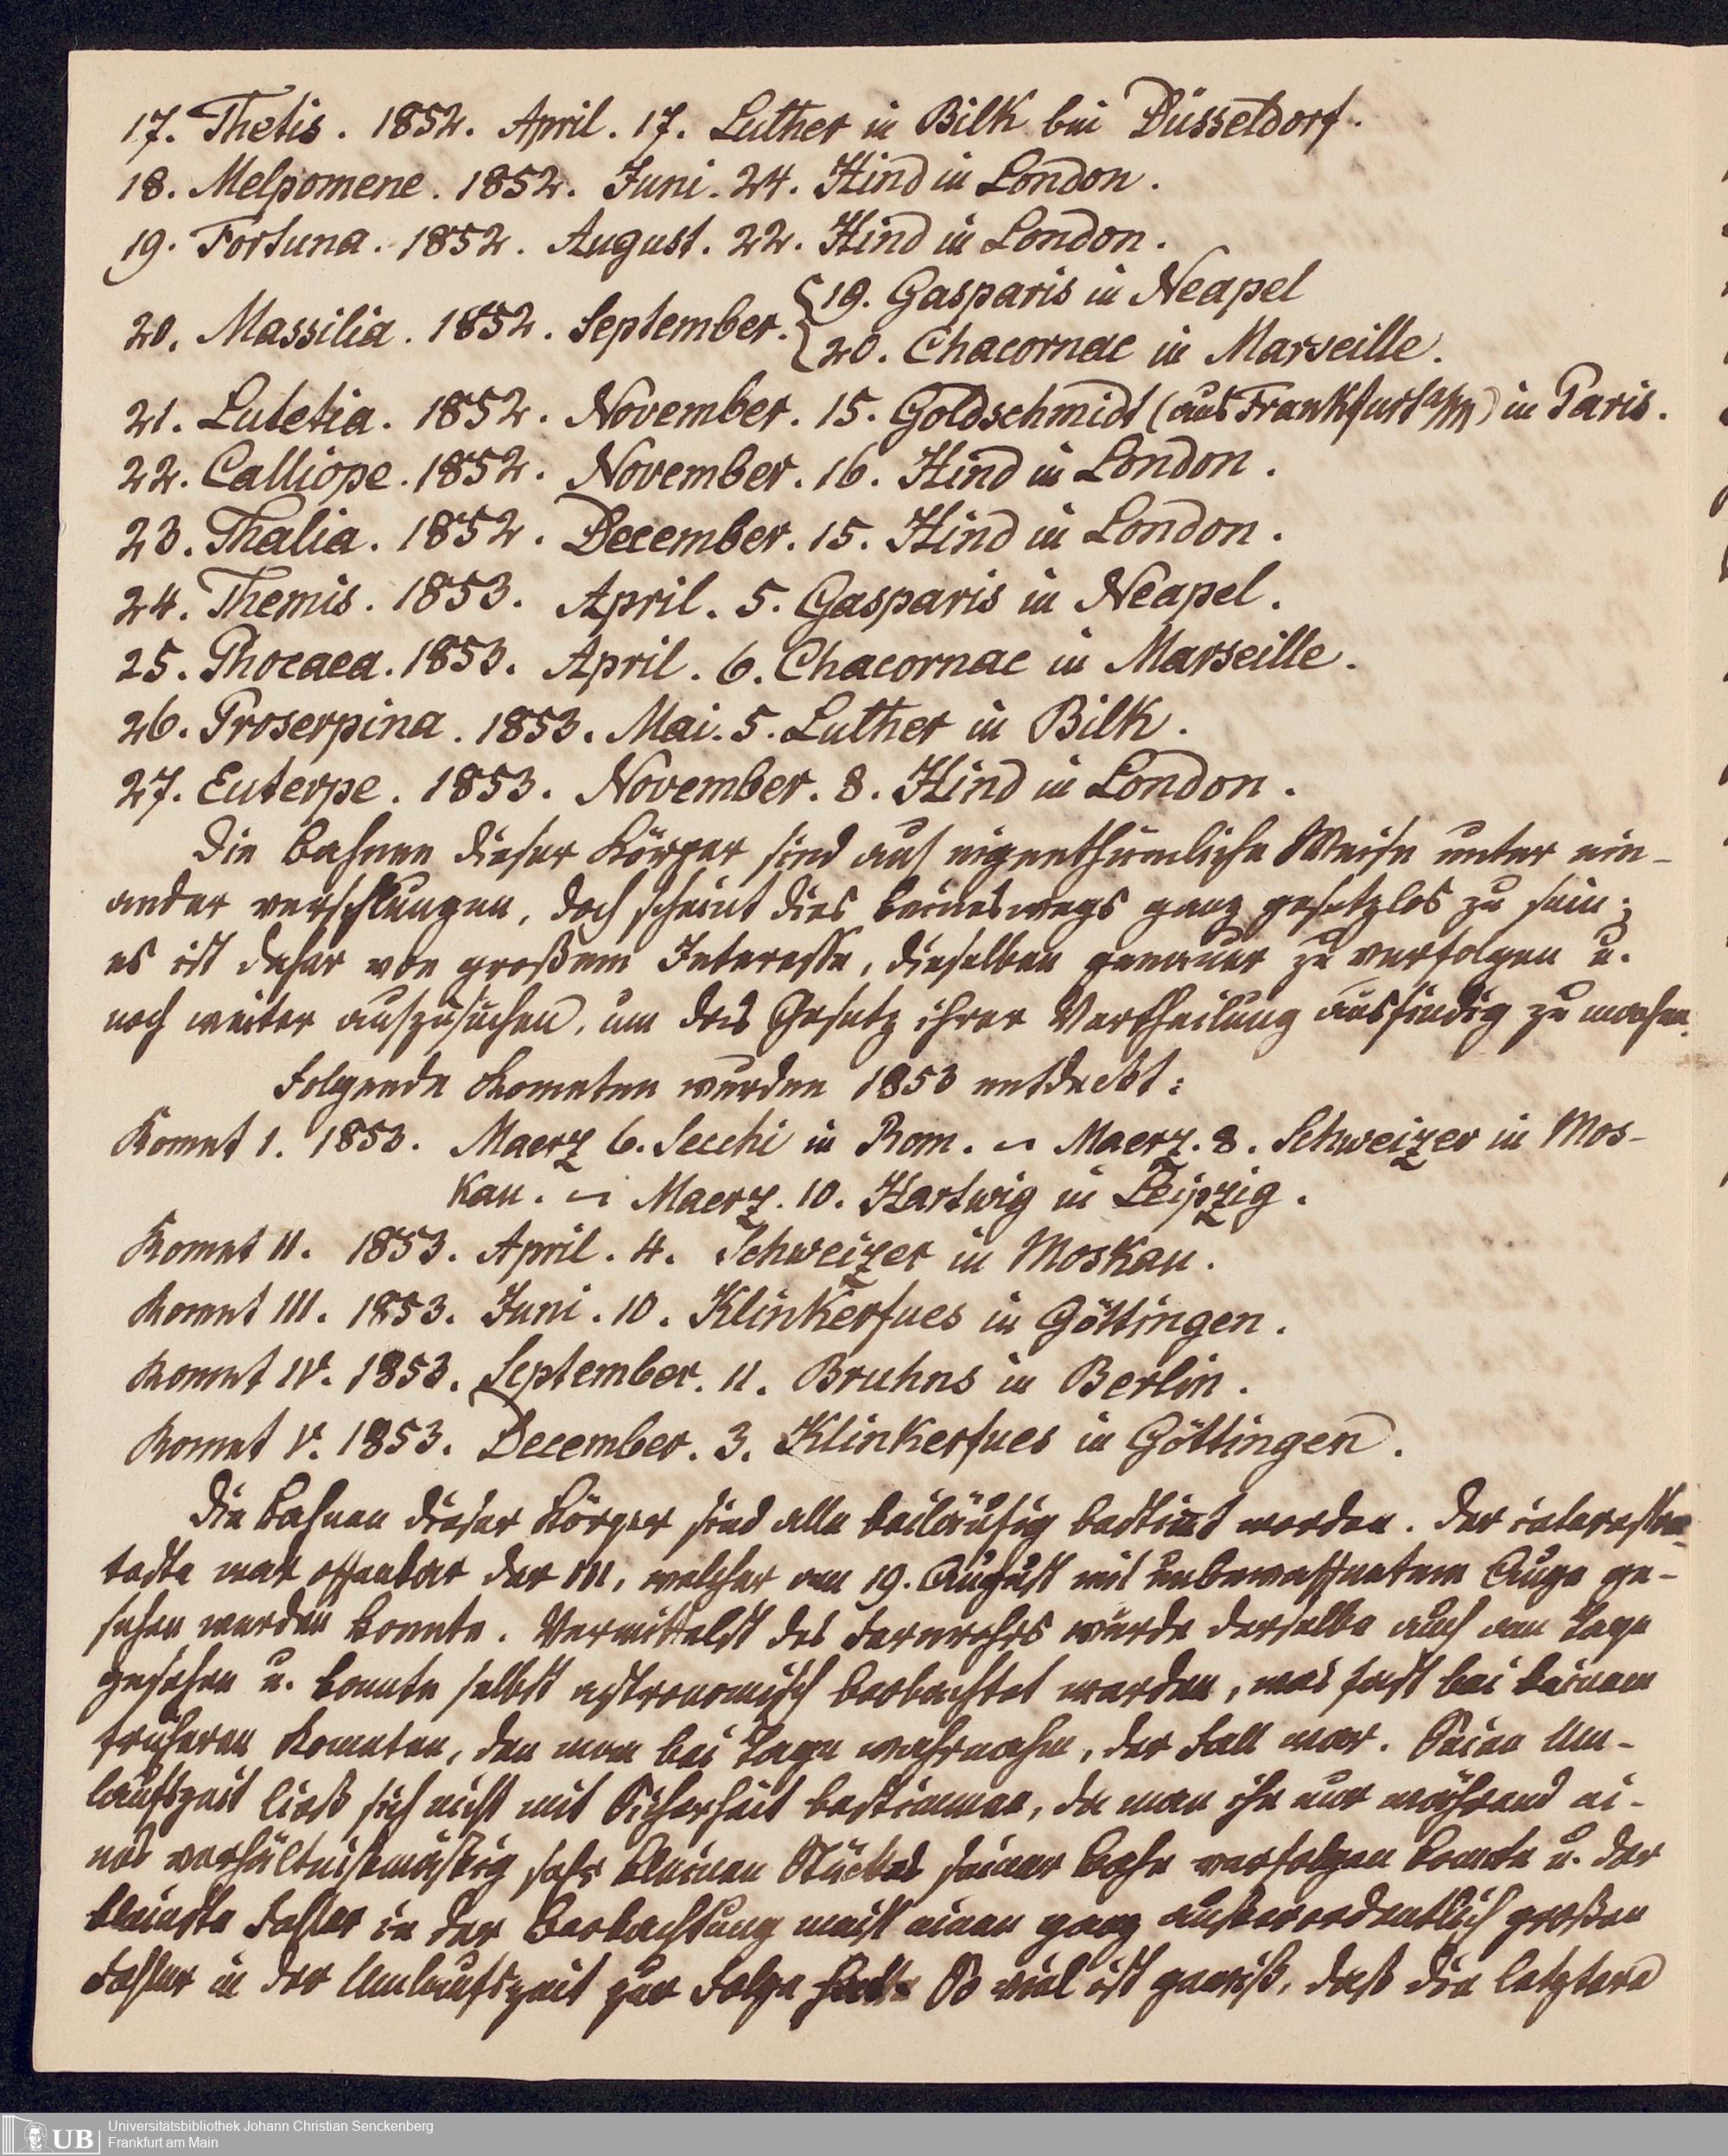 17. Thetis. 1852. April. 17. Luther in Bilk bei Düsseldorf.
18. Melpomene. 1852. Juni. 24. Hind in London.
19. Fortuna. 1852. August. 22. Hind in London.
20. Massilia. 1852. September. {19. Gasparis in Neapel
20. Chacornac in Marseille.
21. Lutetia. 1852. November. 15. Goldschmidt (aus Frankfurt a/M) in Paris.
22. Calliope. 1852. November. 16. Hind in London.
23. Thalia. 1852. December. 15. Hind in London.
24. Themis. 1853. April. 5. Gasparis in Neapel.
25. Phocaea. 1853. April. 6. Chacornac in Marseille.
26. Proserpina. 1853. Mai. 5. Luther in Bilk.
27. Euterpe. 1853. November. 8. Hind in London.
Die Bahnen dieser Körper sind auf eigenthümliche Weise unter ein-
ander verschlungen, doch scheint dies keineswegs ganz gesetzlos zu sein;
es ist daher von großem Interesse, dieselben genauer zu verfolgen u.
noch weiter aufzusuchen, um das Gesetz ihrer Vertheilung ausfindig zu machen.
Folgende Kometen wurden 1853 entdeckt:
Komet I. 1853. Maerz 6. Secchi in Rom. – Maerz. 8. Schweizer in Mos-
kau. – Maerz. 10. Hartwig in Leipzig.
Komet II. 1853. April. 4. Schweizer in Moskau.
Komet III. 1853. Juni. 10. Klinkerfues in Göttingen.
Komet IV. 1853. September. 11. Bruhns in Berlin.
Komet V. 1853. December. 3. Klinkerfues in Göttingen.
Die Bahnen dieser Körper sind alle beiläufig bestimt worden. Der interessan-
teste war offenbar der III, welcher am 19. August mit unbewaffnetem Auge ge-
sehen werden konnte. Vermittelst des Fernrohrs wurde derselbe auch am Tage
gesehen u. konnte selbst astronomisch beobachtet werden, was fast bei keinem
früheren Kometen, den man bei Tage wahrnahm, der Fall war. Seine Um-
laufszeit ließ sich nicht mit Sicherheit bestimmen, da man ihn nur während ei-
nes verhältnißmäßig sehr kleinen Stückes seiner Bahn verfolgen konnte u. der
kleinste Fehler in der Beobachtung meist einen ganz außerordentlich großen
Fehler in der Umlaufszeit zur Folge hatte So viel ist gewiß, daß die letztere
UB
Universitätsbibliothek Johann Christian Senckenberg
Frankfurt am Main